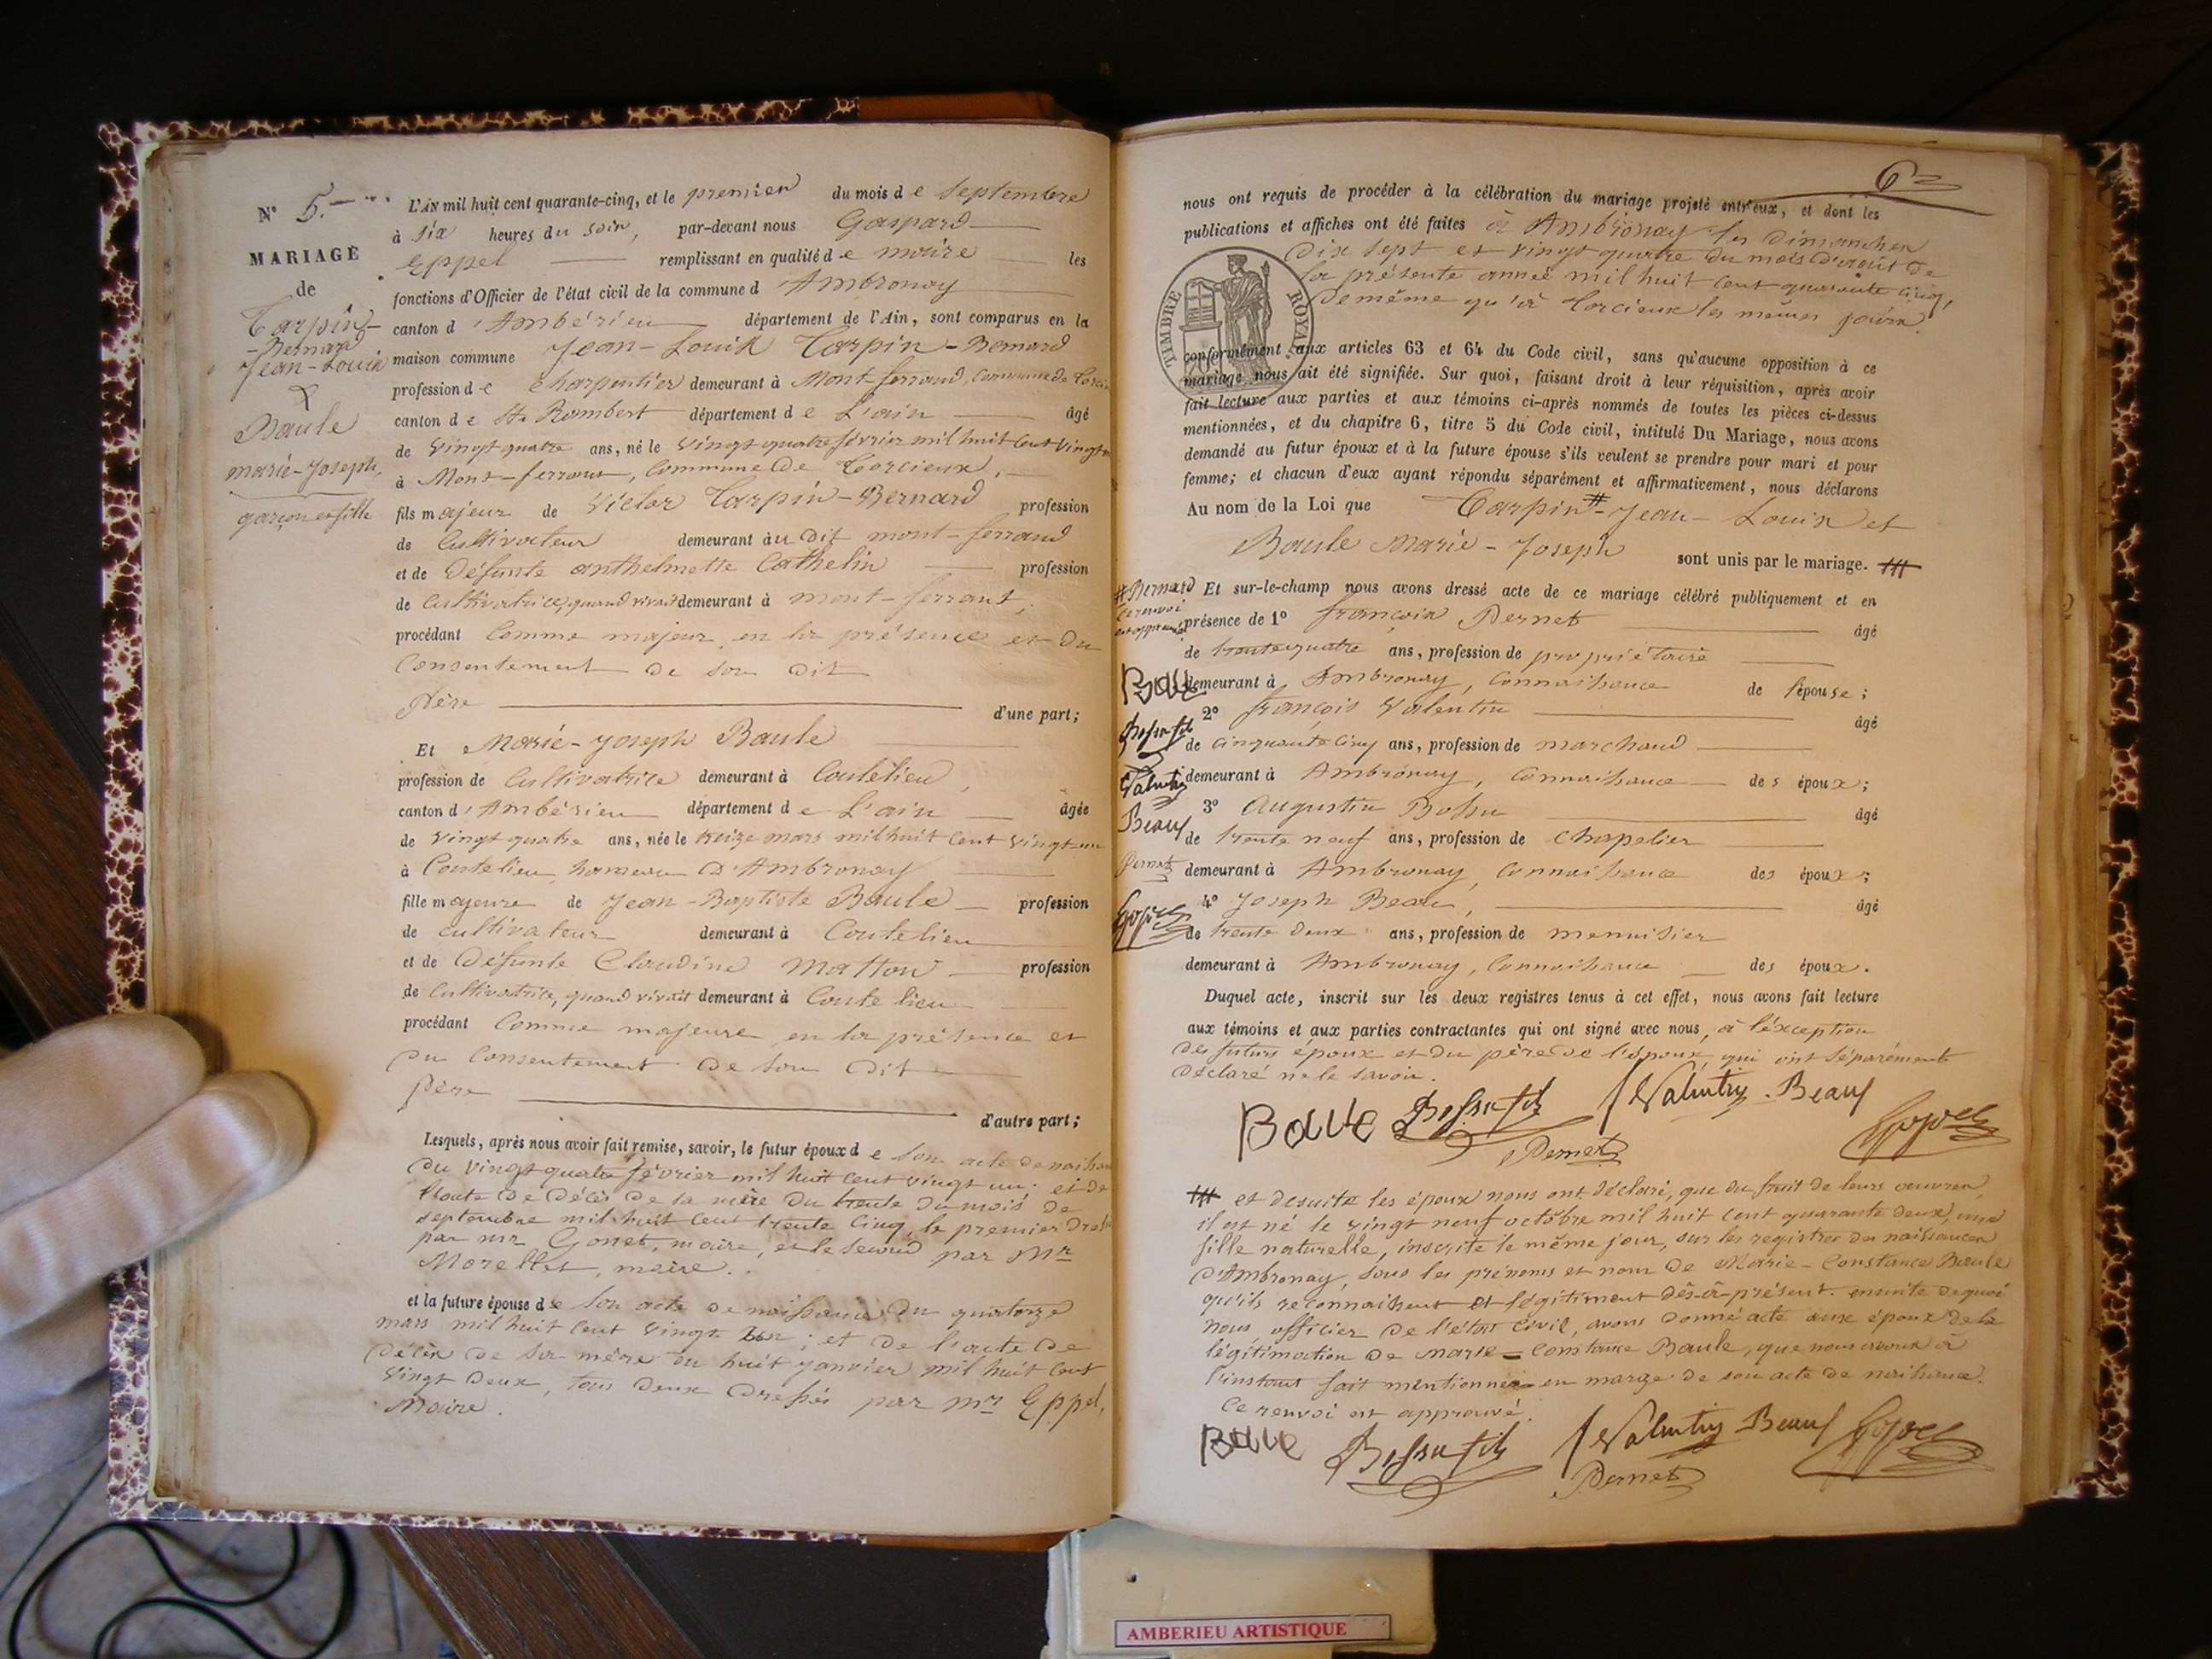 N° 5.
MARIAGE
de
Carpin-
-Bernard
Jean-Louis
&
Baule
marie-Joseph,
garçon et fille
L'AN mil huit cent quarante-cinq, et le premier du mois de Septembre
à six heures du soir, par-devant nous Gaspard
Eppel remplissant en qualité de maire les
fonctions d'Officier de l'état civil de la commune d'Ambronay
canton d'Ambérieu département de l'Ain, sont comparus en la
maison commune Jean-Louis Carpin-Bernard
profession de charpentier demeurant à Mont-ferrand, Commune de
canton de St. Rambert département de L'ain âgé
de vingt quatre ans, né le vingt quatre février mil huit cent vingt
à Mont-ferrand, Commune de Torcieux,
fils majeur de Victor Carpin-Bernard profession
de Cultivateur demeurant au dit mont-ferrand
et de Défunte anthelmette Cathelin profession
de Cultivatrice, quand vivait demeurant à mont-ferrant,
procédant Comme majeur en la présence et du
Consentement de son dit
Père d'une part;
Et Marie-Joseph Baule
profession de Cultivatrice demeurant à Coutelieu,
canton d'Ambérieu département de L'ain âgée
de vingt quatre ans, née le treize mars mil huit cent vingt-un
à Coutelieu, hameau d'Ambronay
fille majeure de Jean-Baptiste Baule profession
de cultivateur demeurant à Coutelieu
et de Défunte Claudine Matton profession
de Cultivatrice, quand vivait demeurant à Coutelieu
procédant Comme majeure en la présence et
du Consentement de son dit
Père d'autre part;
Lesquels, après nous avoir fait remise, savoir, le futur époux de son acte de
du vingt quatre février mil huit cent vingt un; et de
l'acte de décès de sa mère du trente du mois de
septembre mil huit cent trente cinq, le premier
par mr Gonet, maire, et le second par Mr
Morellet, maire.
et la future épouse de son acte de naissance du quatorze
mars mil huit cent vingt un; et de l'acte de
décès de sa mère du huit janvier mil huit cent
vingt deux, tous deux dressés par mr Eppel,
Maire.
6
nous ont requis de procéder à la célébration du mariage projeté entr'eux, et dont les
publications et affiches ont été faites à Ambronay les dimanches
dix sept et vingt quatre du mois d'août de
la présente année mil huit cent quarante cinq,
de même qu'à Torcieux les mêmes jours.
TIMBRE ROYAL
conformément aux articles 63 et 64 du Code civil, sans qu'aucune opposition à ce
mariage nous ait été signifiée. Sur quoi, faisant droit à leur réquisition, après avoir
fait lecture aux parties et aux témoins ci-après nommés de toutes les pièces ci-dessus
mentionnées, et du chapitre 6, titre 5 du Code civil, intitulé Du Mariage, nous avons
demandé au futur époux et à la future épouse s'ils veulent se prendre pour mari et pour
femme; et chacun d'eux ayant répondu séparément et affirmativement, nous déclarons
Au nom de la Loi que Carpin #-Jean-Louis et
Baule Marie-Joseph sont unis par le mariage.
# Bernard
Ce renvoi
est approuvé
Et sur-le-champ nous avons dressé acte de ce mariage célébré publiquement et en
présence de 1° françois Pernet âgé
de trente quatre ans, profession de propriétaire
demeurant à Ambronay, Connaissance de l'épouse;
2° françois Valentin âgé
de cinquante cinq ans, profession de marchand
demeurant à Ambronay, Connaissance des époux;
3° Augustin Bossu âgé
de trente neuf ans, profession de chapelier
demeurant à Ambronay, Connaissance des époux;
4° Joseph Beau, âgé
de trente deux ans, profession de menuisier
demeurant à Ambronay, Connaissance des époux.
Baule
Bossu fils
Valentin
Beau
Pernet
Eppel
Duquel acte, inscrit sur les deux registres tenus à cet effet, nous avons fait lecture
aux témoins et aux parties contractantes qui ont signé avec nous, à l'exception
des futurs époux et du père de l'époux qui ont séparément
déclaré ne le savoir.
Baule Bossu fils f Valentin Beau
Pernet Eppel
et desuite les époux nous ont déclaré, que du fruit de leurs œuvres,
il est né le vingt neuf octobre mil huit cent quarante deux, une
fille naturelle, inscrite le même jour, sur les registres des naissances
d'Ambronay, sous les prénoms et nom de Marie-Constance Baule
qu'ils reconnaissent et légitiment dès-à-présent. ensuite de quoi
nous officier de l'état civil, avons donné acte aux époux de la
légitimation de Marie-Constance Baule, que nous avons à
l'instant fait mentionner en marge de son acte de naissance.
Ce renvoi est approuvé.
Baule Bossu fils f Valentin Beau Eppel
Pernet
AMBERIEU ARTISTIQUE